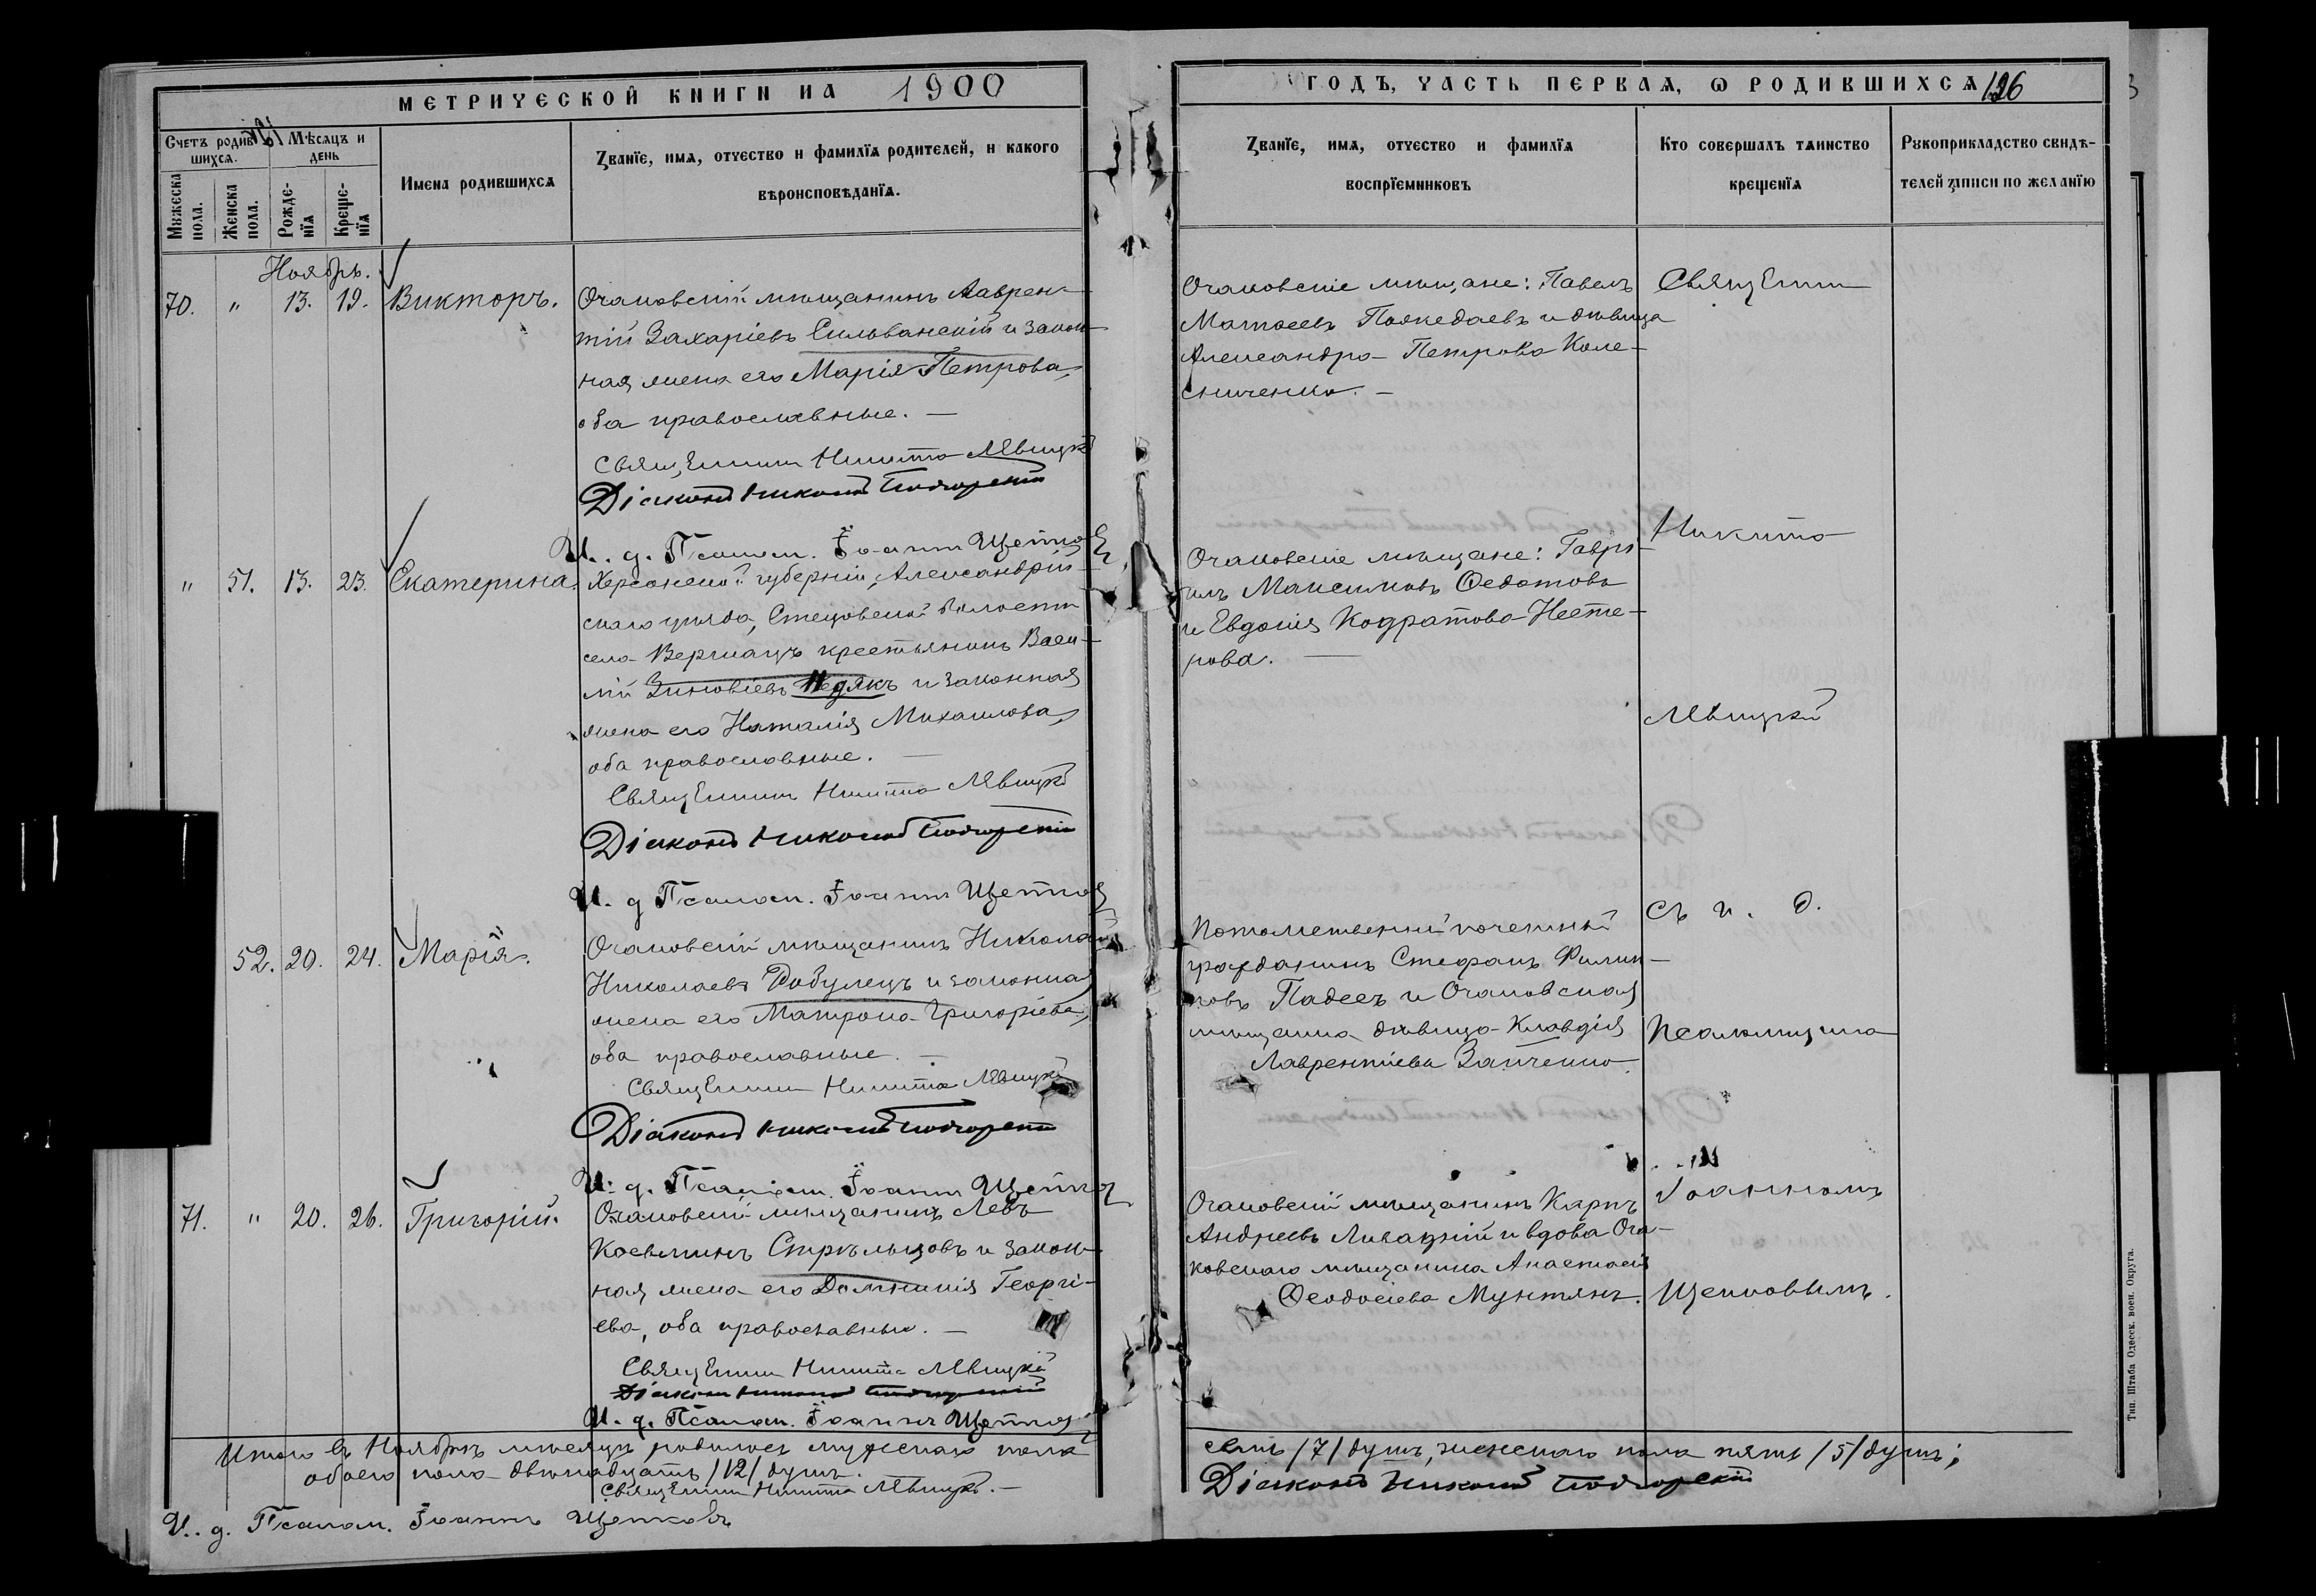 МЕТРИЧЕСКОЙ КНИГИ НА 1900
ГОДЪ, ЧАСТЬ ПЕРВАЯ, Ѡ РОДИВШИХСЯ 126
Счетъ родив-
шихся.
Мѣсяцъ и
день
Мужеска
пола.
Женска
пола.
Рожде-
нїя
Креще-
нїя
Имена родившихся
Званїе, имя, отчество и фамилїя родителей, и какого
вѣроисповѣданїя.
Званїе, имя, отчество и фамилїя
воспрїемниковъ
Кто совершалъ таинство
крещенїя
Рукоприкладство свидѣ-
телей записи по желанїю
Ноябрь.
70. " 13. 19. Викторъ.
Очаковскій мѣщанинъ Лаврен-
тій Захаріевъ Сильванскій и закон-
ная жена его Марія Петрова,
оба православные. —
Священникъ Никита Лѣвицкій
Діаконъ Николай Подгорскій
И. д. Псалом. Іоаннъ Щепковъ
Очаковскіе мѣщане: Павелъ
Матѳеевъ и дѣвица
Александра Петрова Коле-
сниченко. —
" 51. 13. 23. Екатерина.
Херсонской губерніи, Александрій-
скаго уѣзда, Стецовской волости
села Вершацъ крестьянинъ Васи-
лій Зиновіевъ и законная
жена его Наталія Михаилова,
оба православные. —
Священникъ Никита Лѣвицкій
Діаконъ Николай Подгорскій
И. д. Псалом. Іоаннъ Щепковъ
Очаковскіе мѣщане: Гаврі-
илъ Максимовъ Ѳедотовъ
и Евдокія Кодратова Несте-
рова. —
52. 20. 24. Марія.
Очаковскій мѣщанинъ Николай
Николаевъ Робулецъ и законная
жена его Матрона Григоріева,
оба православные. —
Священникъ Никита Лѣвицкій
Діаконъ Николай Подгорскій
И. д. Псалом. Іоаннъ Щепковъ
Потомственный почетный
гражданинъ Стефанъ Филип-
повъ Падеевъ и Очаковская
мѣщанка дѣвица Клавдія
Лаврентіева Зайченко.
71. " 20. 26. Григорій.
Очаковскій мѣщанинъ Левъ
Косьминъ Стрѣльцовъ и закон-
ная жена его Домникія Георгі-
ева, оба православные. —
Священникъ Никита Лѣвицкій
Діаконъ Николай Подгорскій
И. д. Псалом. Іоаннъ Щепковъ
Очаковскій мѣщанинъ Карпъ
Андреевъ Ливадзкій и вдова Оча-
ковскаго мѣщанина Анастасія
Ѳеодосіева Мунтянъ.
Священникъ
Никита
Лѣвицкій
съ и. д.
Псаломщика
Іоанномъ
Щепковымъ.
Итого въ Ноябрѣ мѣсяцѣ родилось мужескаго пола
семь /7/ душъ, женскаго пола пять /5/ душъ;
обоего пола двѣнадцать /12/ душъ.
Священникъ Никита Лѣвицкій. —
Діаконъ Николай Подгорскій
И. д. Псалом. Іоаннъ Щепковъ
Тип. Штаба Одесск. воен. Округа.